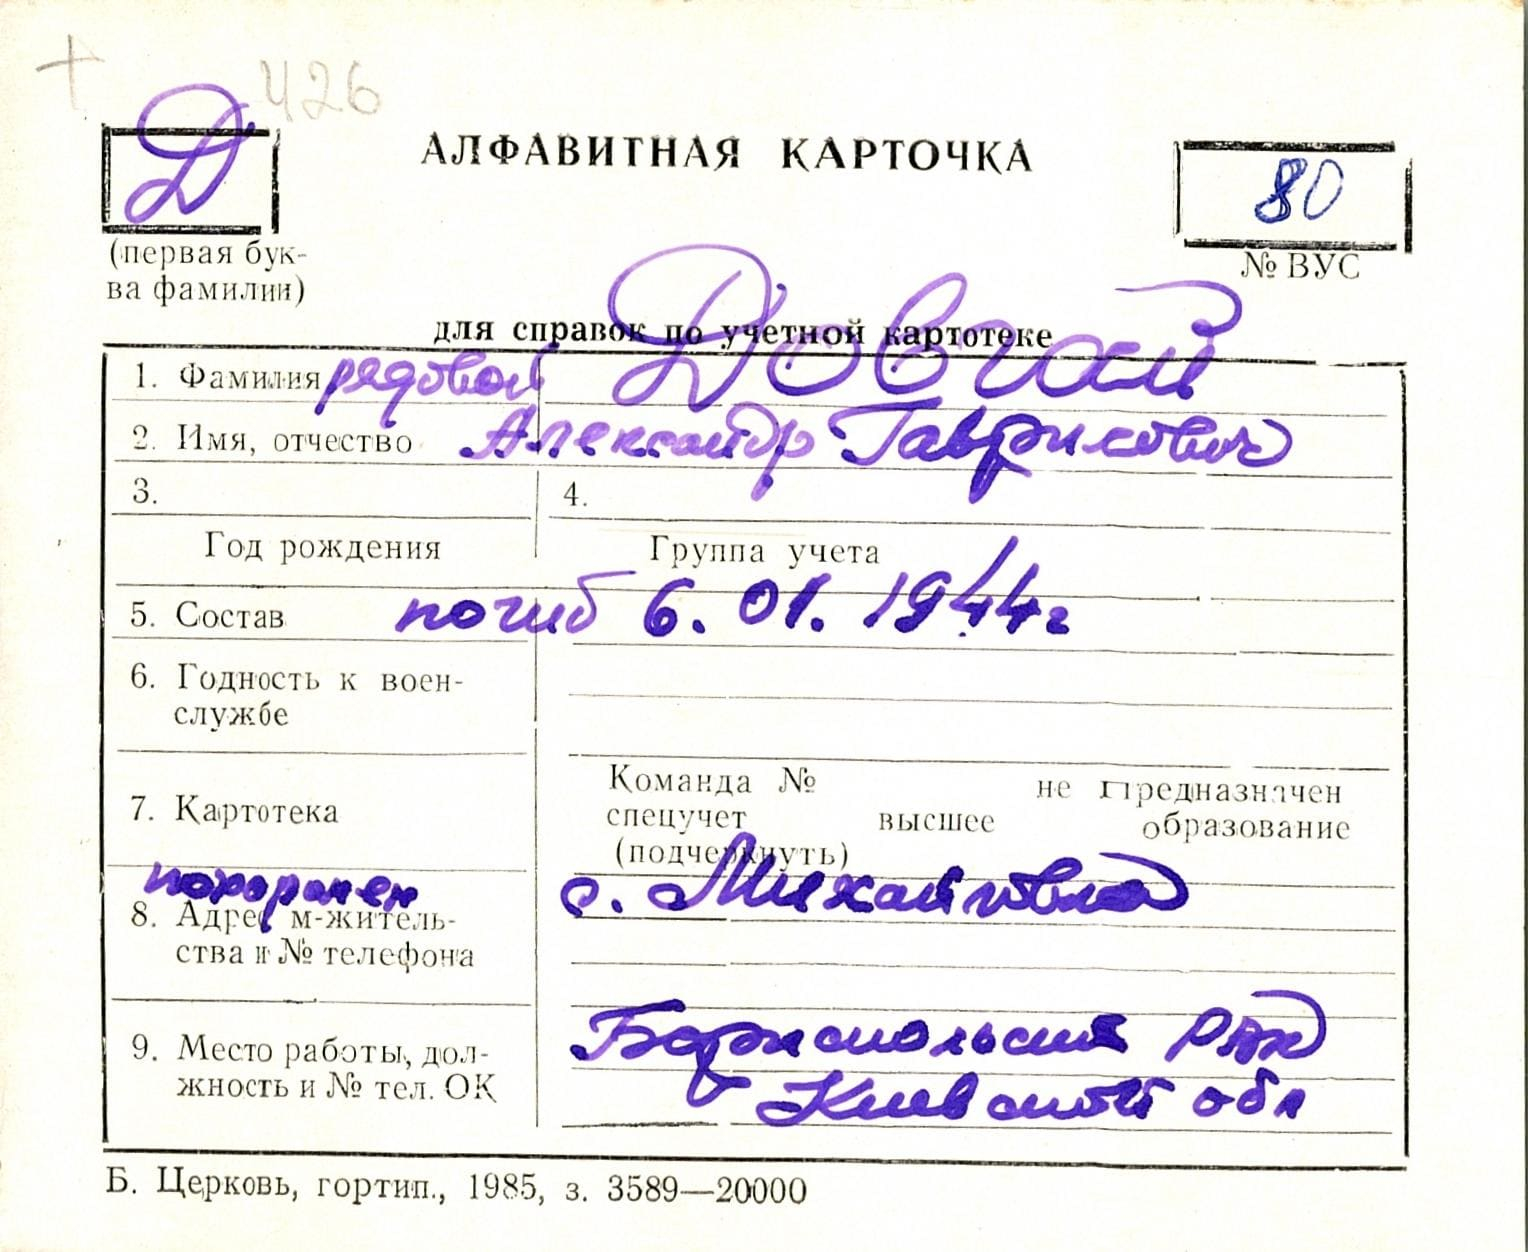 + 426
Д
АЛФАВИТНАЯ КАРТОЧКА
80
(первая бук-
ва фамилии)
№ ВУС
для справок по учетной картотеке
1. Фамилия рядовой Довгай
2. Имя, отчество Александр Гаврилович
3. 4.
Год рождения Группа учета
5. Состав погиб 6. 01. 1944г
6. Годность к воен-
службе
Команда № не предназначен
7. Картотека
спецучет высшее образование
(подчеркнуть)
похоронен с. Михайловка
8. Адрес м-житель-
ства и № телефона
Бориспольский
9. Место работы, дол-
жность и № тел. ОК
Киевской обл
Б. Церковь, гортип., 1985, з. 3589—20000